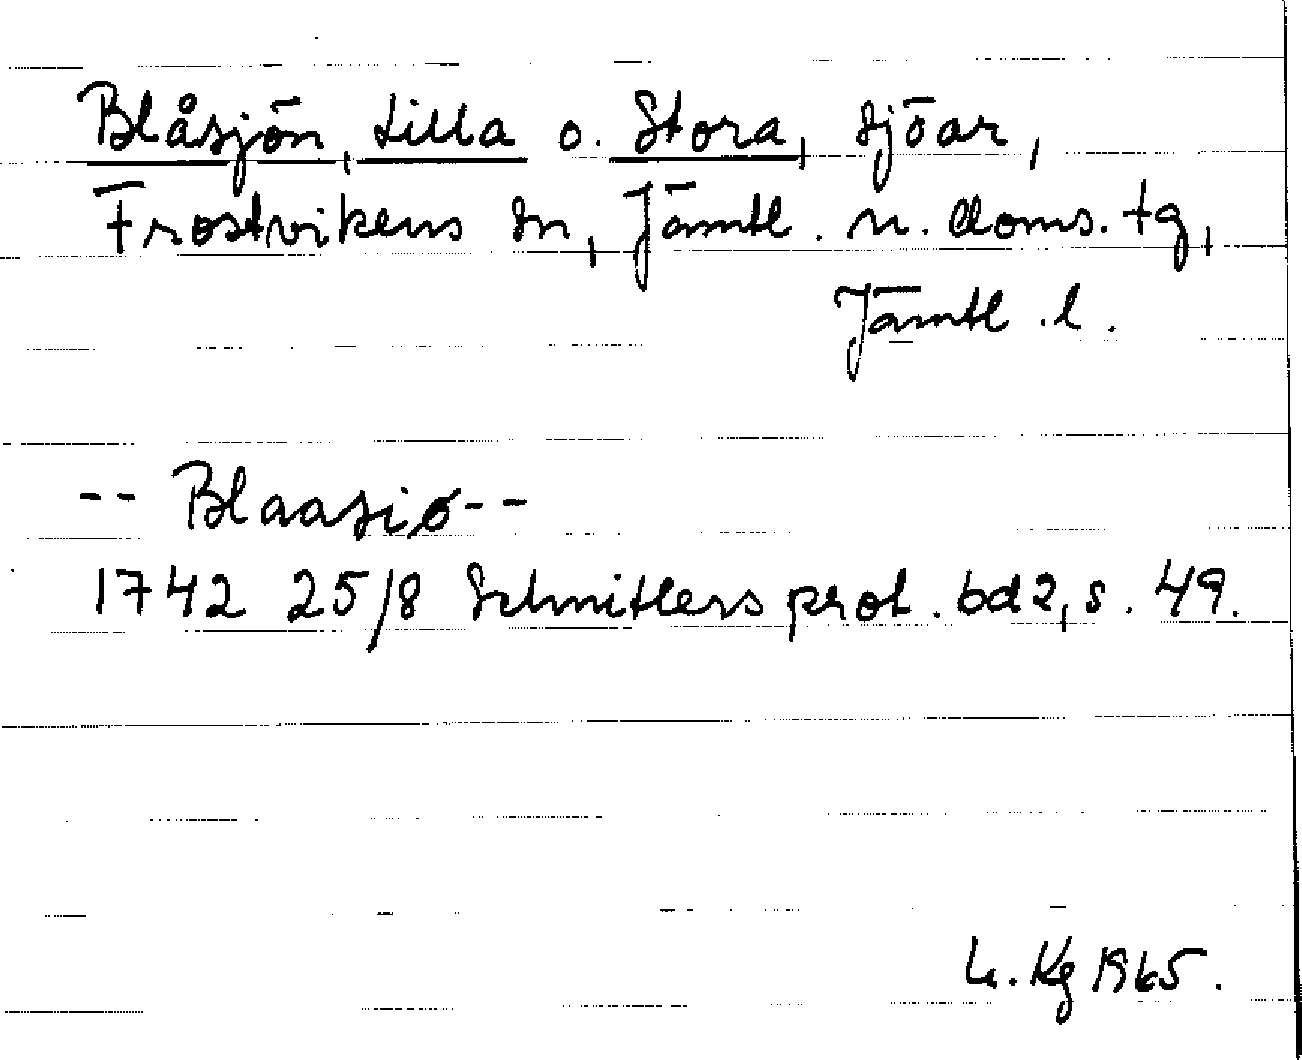 Blåsjön, Lilla o. Stora, sjöar,
Frostvikens sn, Jämtl. n. doms. tg,
Jämtl. l.
-- Blaasiø--
1742 25/8 Schnitlers prot. bd 2, s. 49.
Kg 1965.